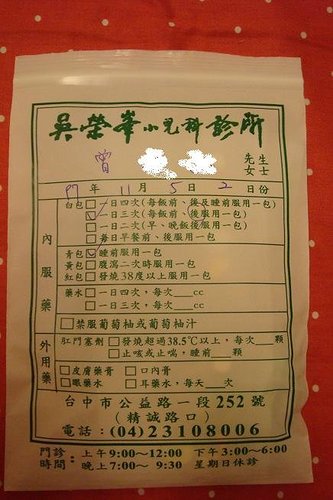 吳榮峯小兒科診所
曾 先生
女士
年 11月 5日 2日份
內服藥
白包□一日四次(每飯前、後及睡前服用一包)
□一日三次(每飯前、後服用一包)
□一日二次(早、晚飯後服用一包)
□每日早餐前、後服用一包
青包□睡前服用一包
黃包□腹瀉二次時服用一包
紅包□發燒38度以上服用一包
藥水□一日四次，每次___cc
□一日三次，每次___cc
□禁服葡萄柚或葡萄柚汁
外用藥
肛門塞劑□發燒超過38.5℃以上，每次__顆
□止咳或止喘，睡前__顆
□皮膚藥膏 □口內膏
□眼藥水 □耳藥水，每天__次
台中市公益路一段252號
(精誠路口)
電話：(04)23108006
門診時間：上午9:00~12:00 下午3:00~6:00
晚上7:00~9:30 星期日休診